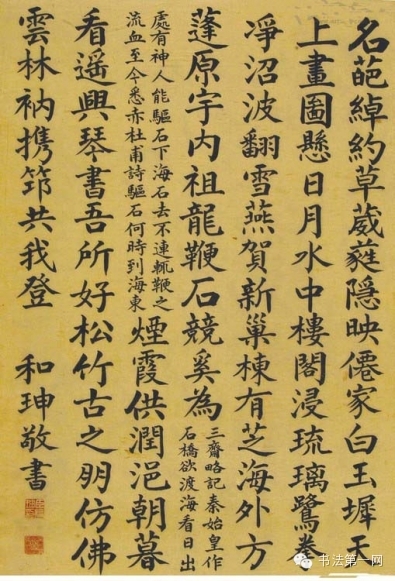 名葩綽約草葳蕤隱映僊家白玉墀天
上畫圖懸日月水中樓閣浸琉璃鷺拳
凈沼波翻雪燕賀新巢棟有芝海外方
蓬原宇内祖龍鞭石競奚為
三齋略記秦始皇作
石橋欲渡海看日出
處有神人能驅石下海石去不速輒鞭之
流血至今悉赤杜甫詩驅石何時到海東
煙霞供潤浥朝暮
看遥興琴書吾所好松竹古之朋仿佛
雲林衲携筇共我登 和珅敬書
书法第一网